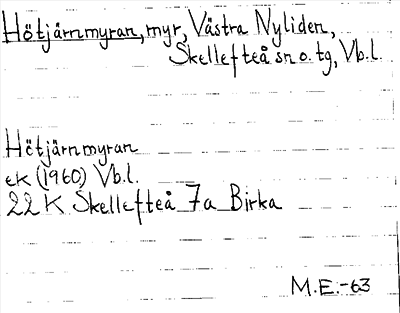 Hötjärnmyran, myr, Västra Nyliden,
Skellefteå sn o. tg, Vb.l.
Hötjärnmyran
ek (1960) Vb.l.
22 K Skellefteå 7a Birka
M.E.-63